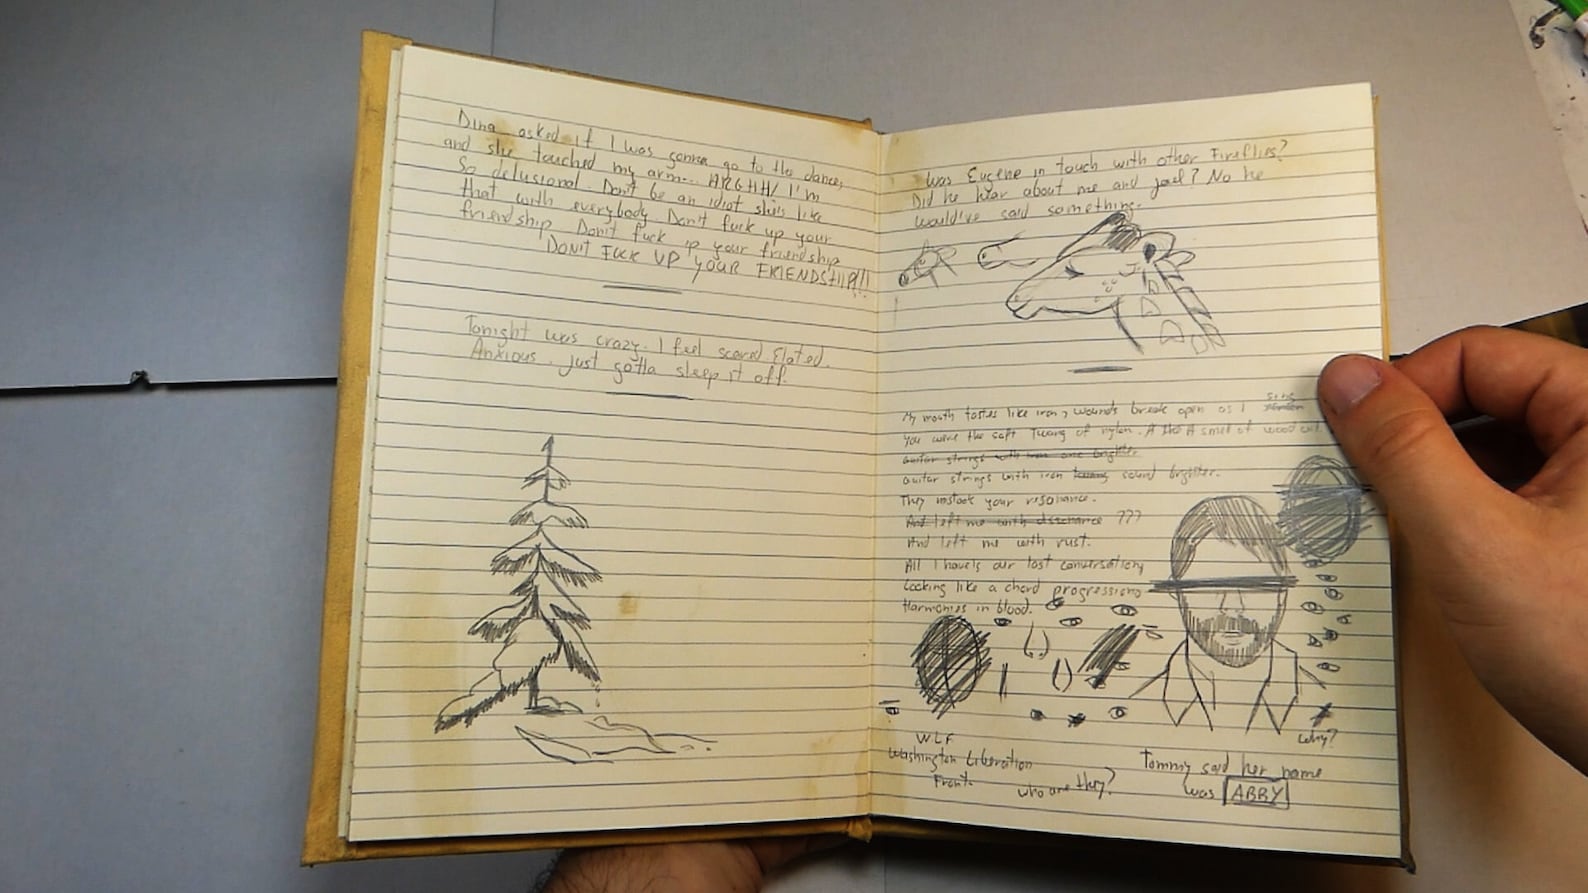 Dina asked if I was gonna go to the dance,
and she touched my arm... ARGHH! I'm
So delusional. Don't be an idiot she's like
that with everybody. Don't fuck up your
friendship Don't fuck up your friendship
DON'T FUCK UP YOUR FRIENDSHIP!!!
Tonight was crazy. I feel scared Elated.
Anxious. just gotta sleep it off.
Was Eugene in touch with other Fireflies?
Did he hear about me and Joel? No he
would've said something.
My mouth tastes like iron, wounds break open as I sing
You were the soft Twang of nylon. A smell of wood
guitar strings with iron one brighter
Guitar strings with iron sound brighter.
They mistook your resonance.
And left me with dissonance ???
And left me with rust.
All I have is our last conversation,
Looking like a chord progression
Harmonies in blood.
why?
WLF
Washington Liberation
Front.
who are they?
Tommy said her name
was ABBY